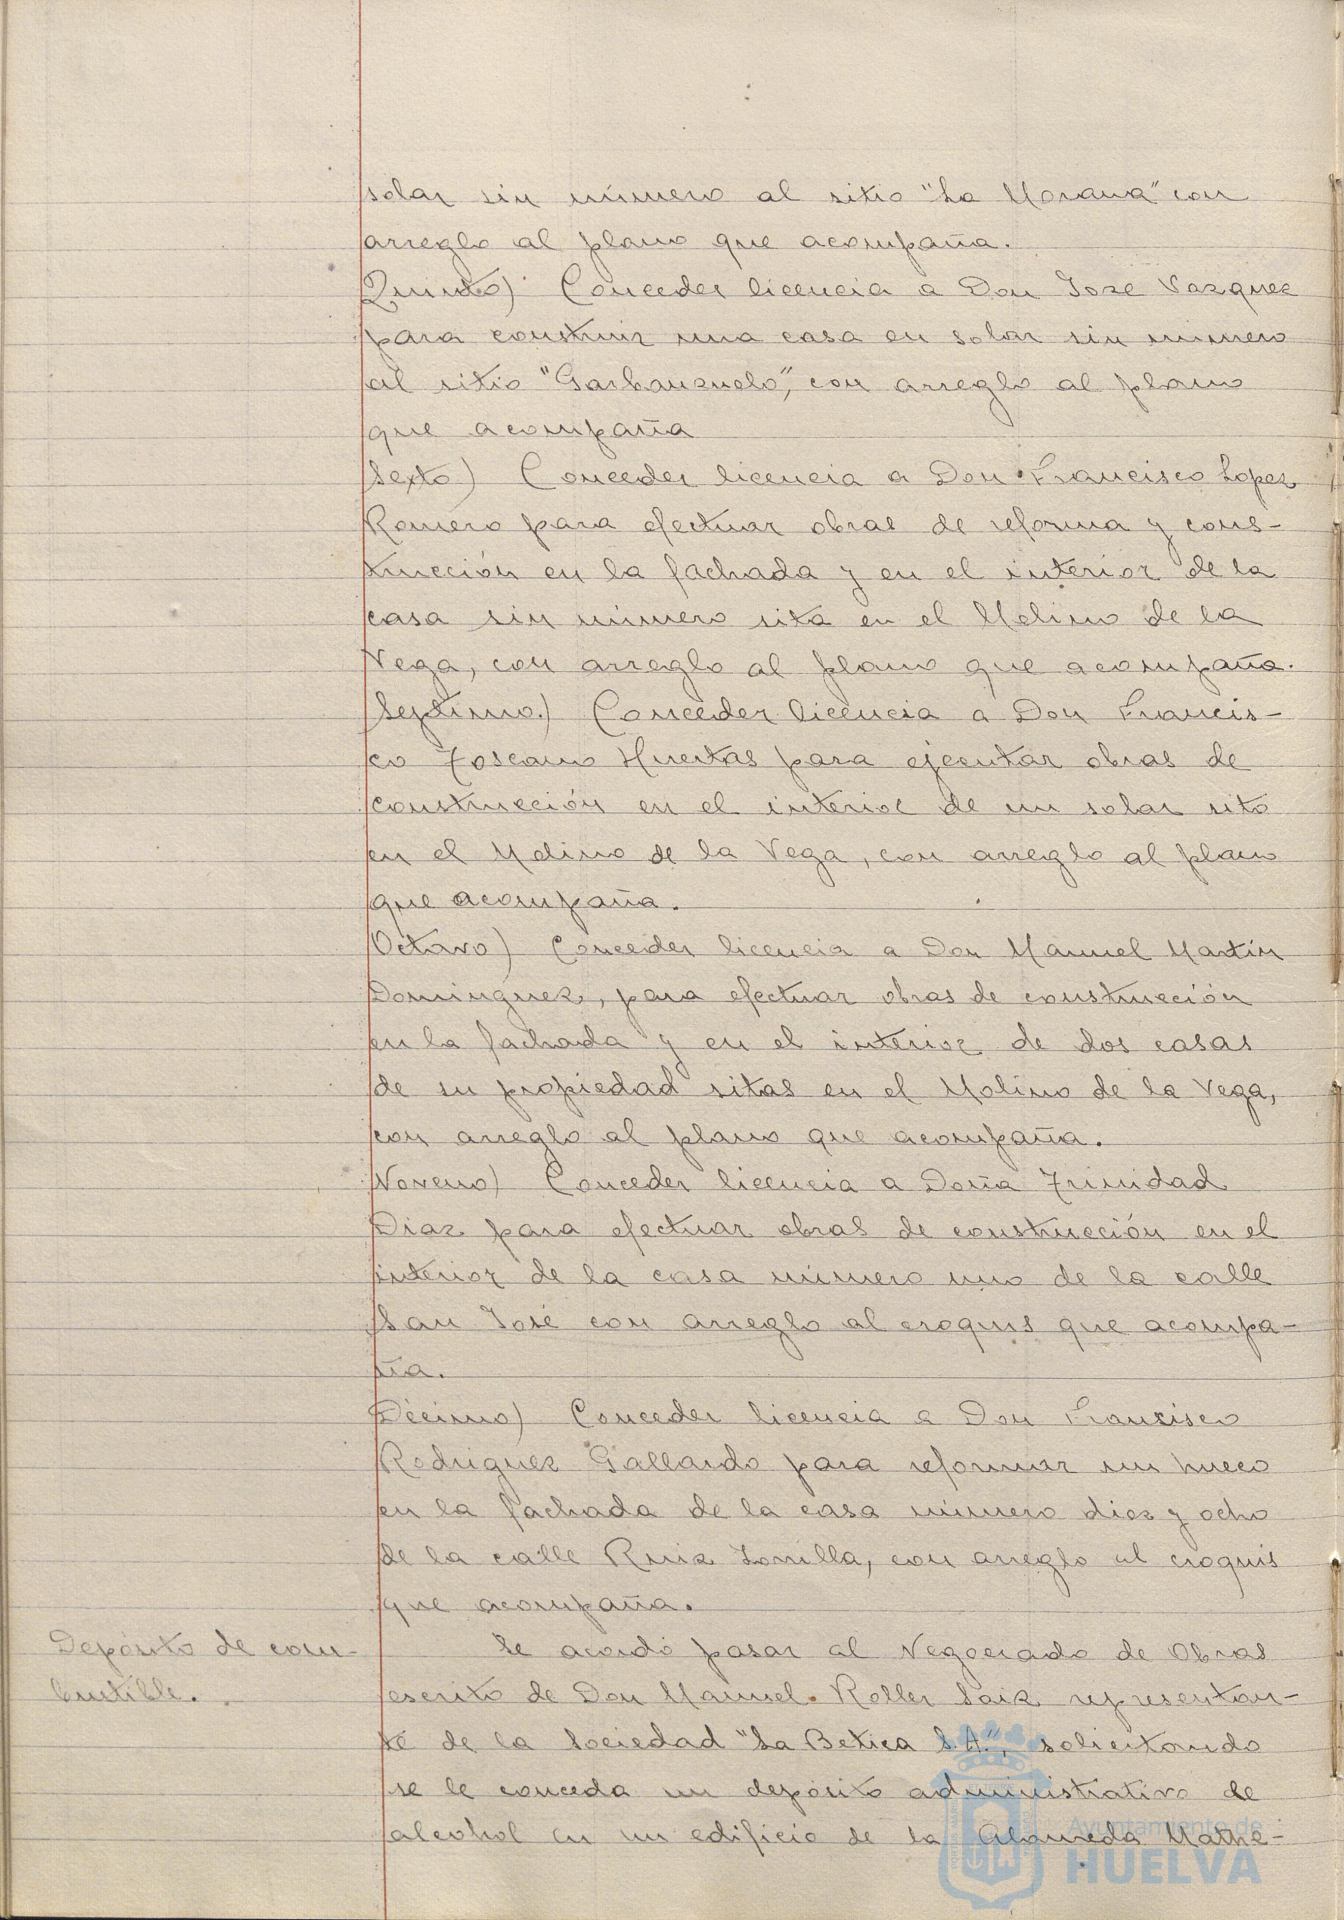 solar sin número al sitio "La Morana" con
arreglo al plano que acompaña.
Quinto) Conceder licencia a Don Jose Vazquez
para construir una casa en solar sin numero
al sitio "Garbanzuelo", con arreglo al plano
que acompaña
Sexto) Conceder licencia a Don Francisco Lopez
Romero para efectuar obras de reforma y cons-
trucción en la fachada y en el interior de la
casa sin número sita en el Molino de la
Vega, con arreglo al plano que acompaña.
Septimo.) Conceder licencia a Don Francis-
co Toscano Huertas para ejecutar obras de
construcción en el interior de un solar sito
en el Molino de la Vega, con arreglo al plano
que acompaña.
Octavo) Conceder licencia a Don Manuel Martín
Dominguez, para efectuar obras de construcción
en la fachada y en el interior de dos casas
de su propiedad sitas en el Molino de la Vega,
con arreglo al plano que acompaña.
Noveno) Conceder licencia a Doña Trinidad
Diaz para efectuar obras de construcción en el
interior de la casa número uno de la calle
San José con arreglo al croquis que acompa-
ña.
Décimo) Conceder licencia a Don Francisco
Rodriguez Gallardo para reformar un hueco
en la fachada de la casa número diez y ocho
de la calle Ruiz Zorrilla, con arreglo al croquis
que acompaña.
Depósito de com-
bustible.
Se acordó pasar al Negociado de Obras
escrito de Don Manuel Roller Saiz representan-
te de la Sociedad "La Betica S.A.", solicitando
se le conceda un depósito administrativo de
alcohol en un edificio de la Alameda Mathe-
Ayuntamiento de
HUELVA